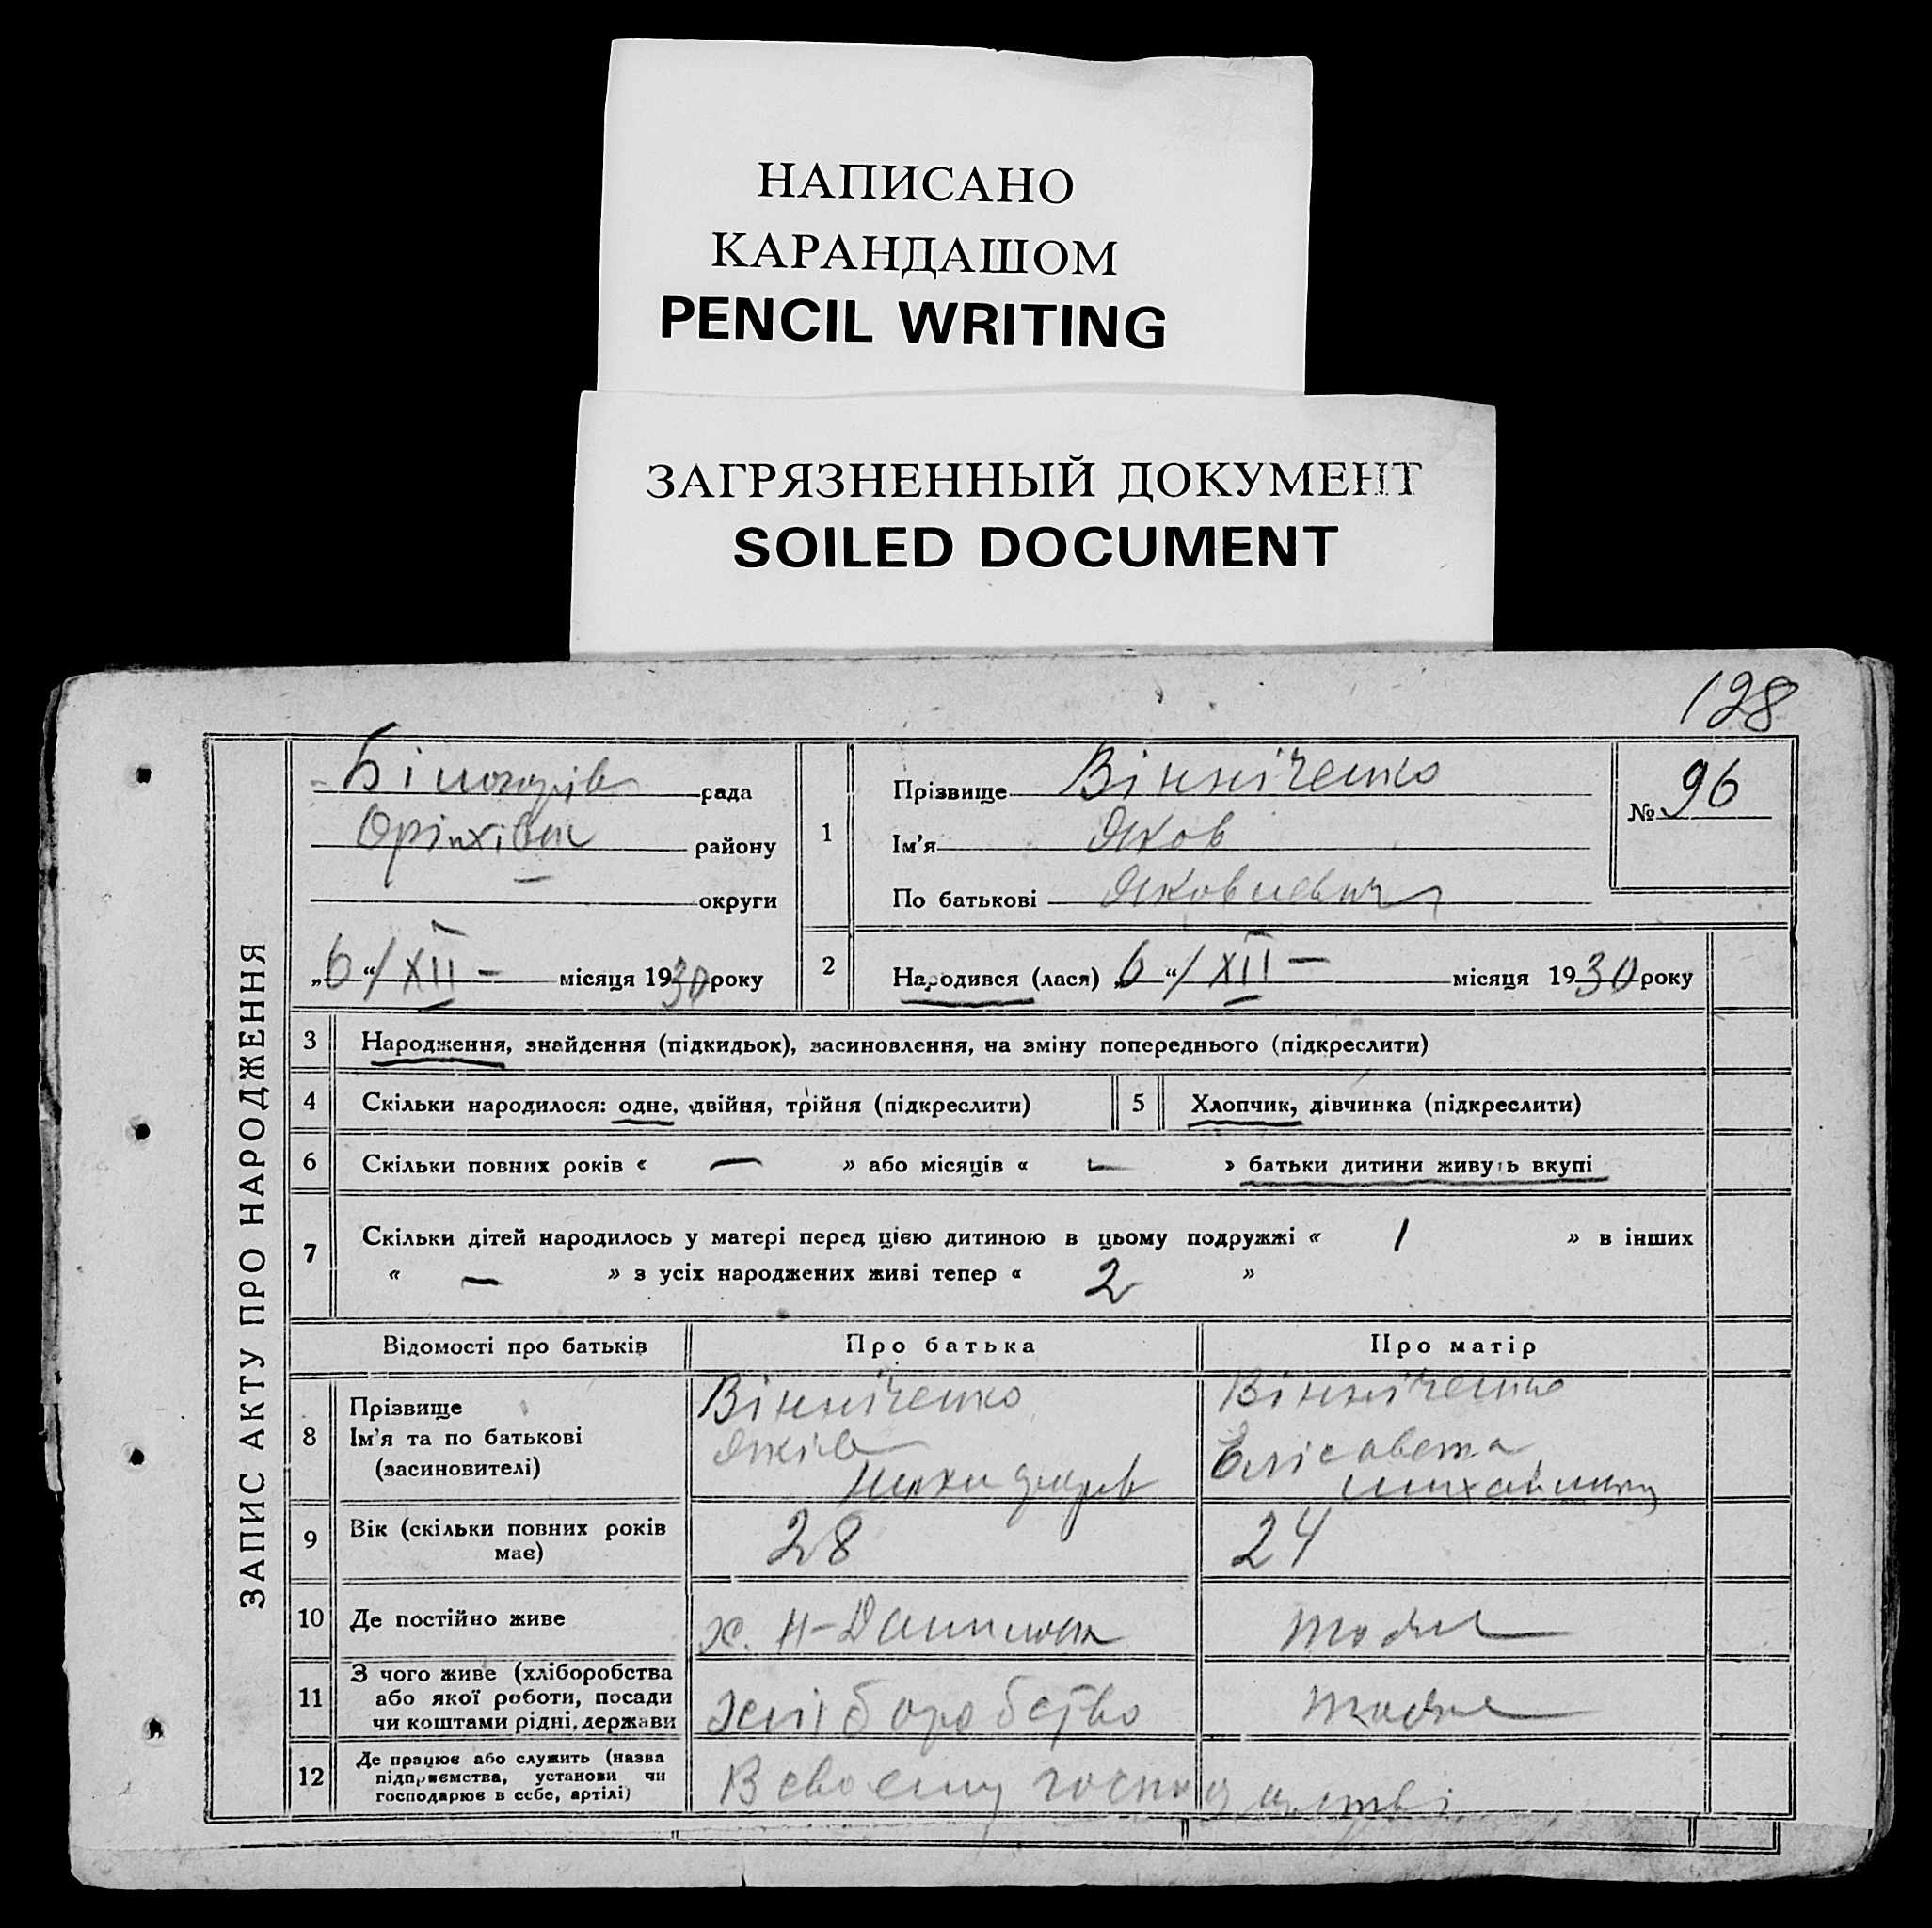 НАПИСАНО
КАРАНДАШОМ
PENCIL WRITING
ЗАГРЯЗНЕННЫЙ ДОКУМЕНТ
SOILED DOCUMENT
128
ЗАПИС АКТУ ПРО НАРОДЖЕННЯ
Білогорів рада
Оріхівськ району
округи
„6“/XII – місяця 1930 року
1
Прізвище Вінніченко
Ім'я Яков
По батькові Яковлевич
№ 96
2
Народився (лася) „6“/XII – місяця 1930 року
3 Народження, знайдення (підкидьок), засиновлення, на зміну попереднього (підкреслити)
4 Скільки народилося: одне, двійня, трійня (підкреслити)
5 Хлопчик, дівчинка (підкреслити)
6 Скільки повних років « — » або місяців « — » батьки дитини живуть вкупі
7 Скільки дітей народилось у матері перед цією дитиною в цьому подружжі « 1 » в інших
« — » з усіх народжених живі тепер « 2 »
Відомості про батьків Про батька Про матір
8
Прізвище
Ім'я та по батькові
(засиновителі)
Вінніченко
Яків
Вінніченко
Єлісавета
Михайлівна
9 Вік (скільки повних років
має)
28 24
10 Де постійно живе х. Н-Данилівка тодже
11
З чого живе (хліборобства
або якої роботи, посади
чи коштами рідні, держави
хліборобство тодже
12
Де працює або служить (назва
підприємства, установи чи
господарює в себе, артілі)
В своєму господарстві